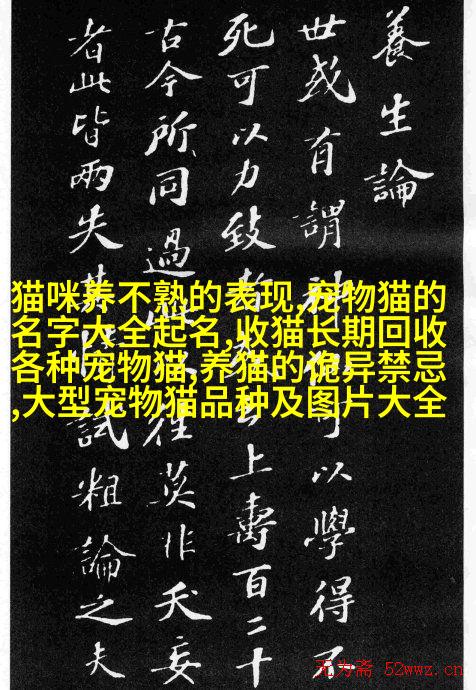 養生論
世或有謂神可以學得不
死可以力致者上壽百二十
古今所同過往莫非夭妄
者此皆兩失其試粗論之夫
猫咪养不熟的表现,宠物猫的
名字大全起名,收猫长期回收
各种宠物猫,养猫的诡异禁忌
,大型宠物猫品种及图片大全
无为斋 52wwz.cn